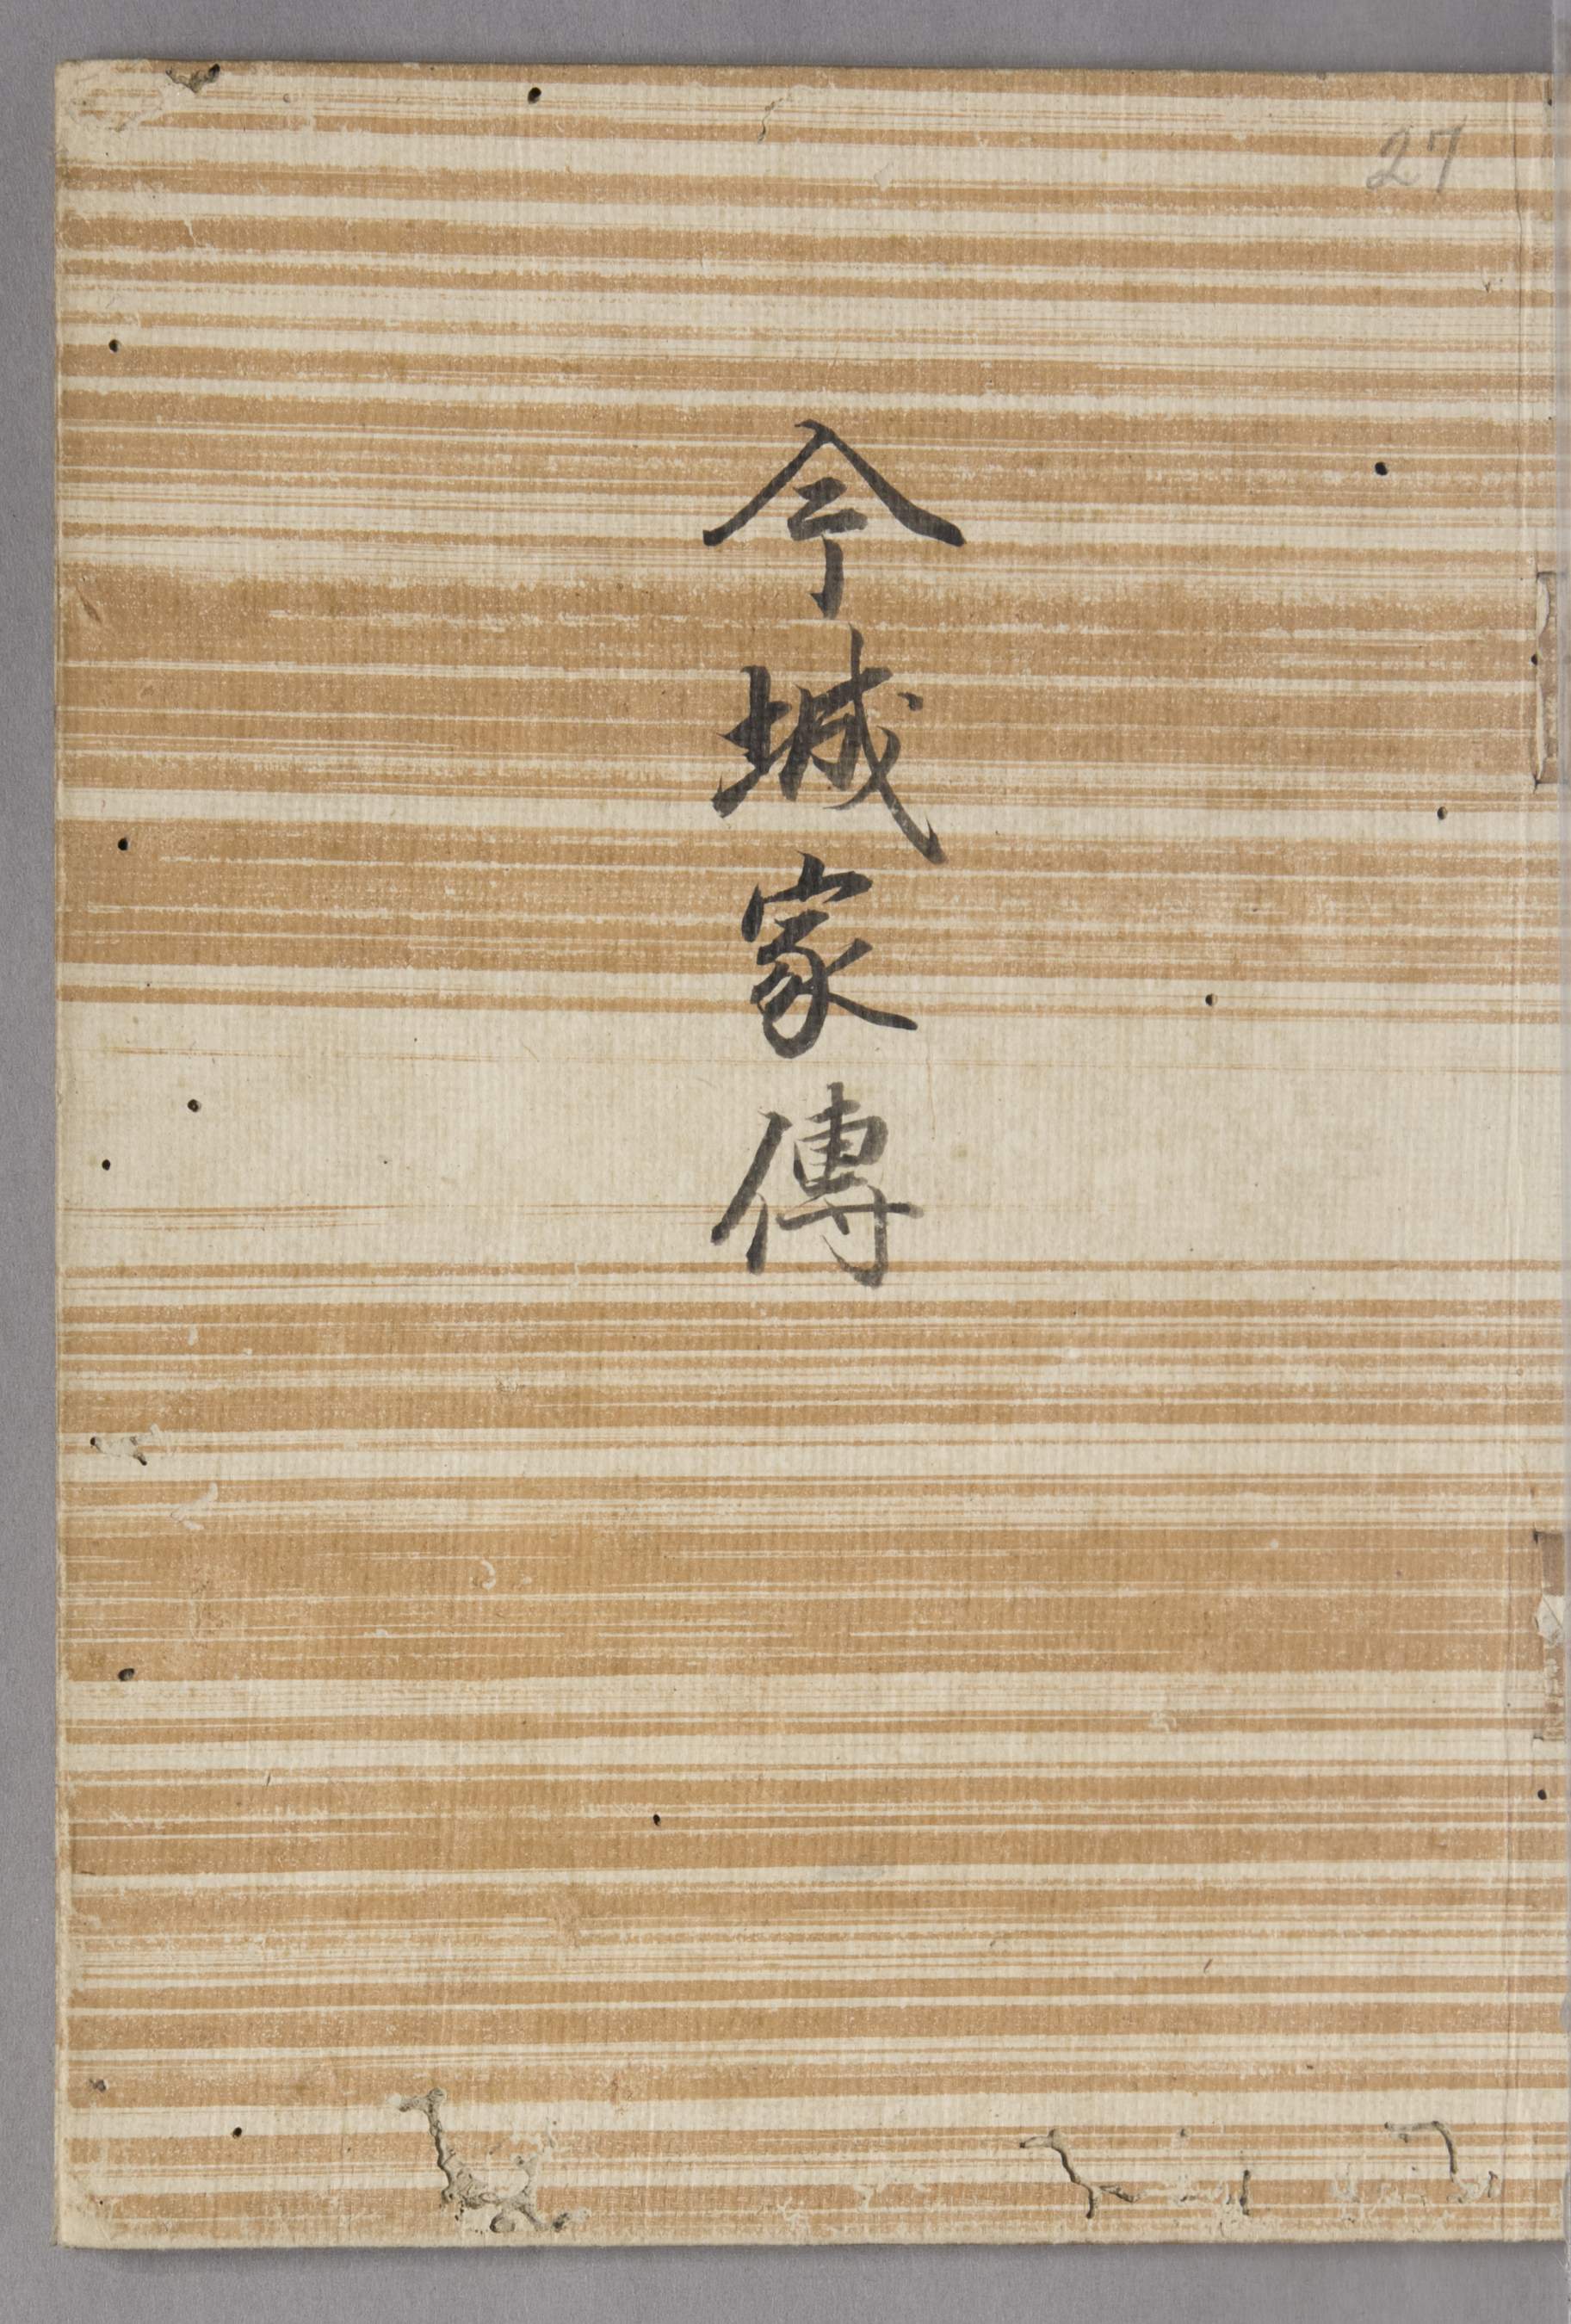 27
今城家傳